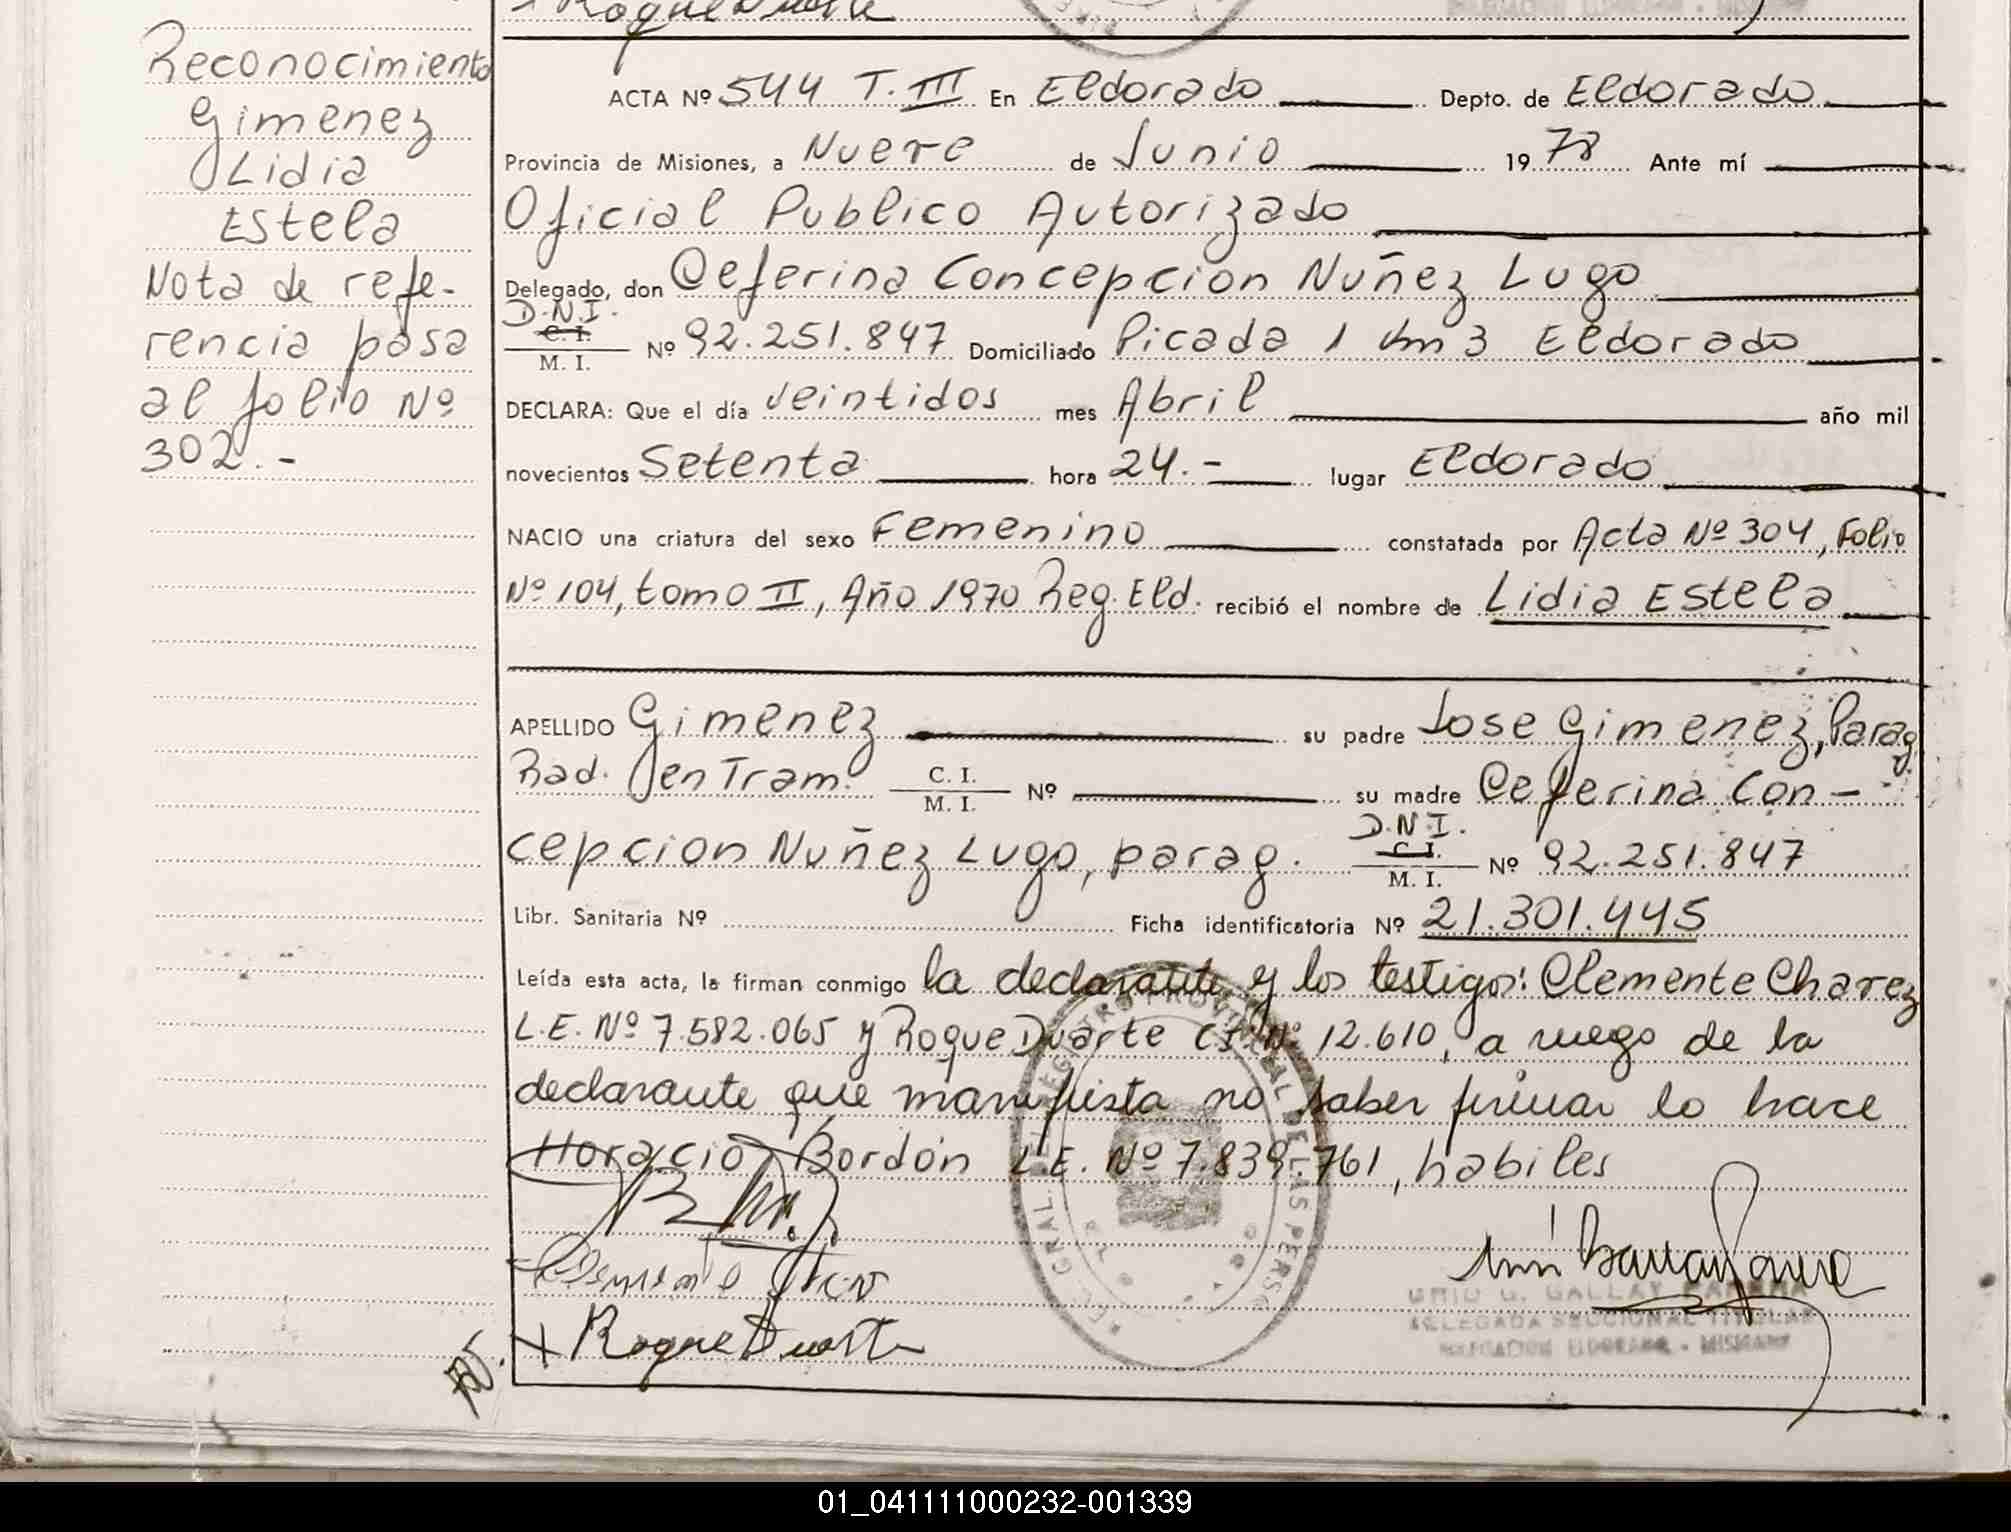 Roque Duarte
Reconocimiento
Gimenez
Lidia
Estela
Nota de refe-
rencia pasa
al folio Nº
302.-
ACTA Nº 544 T. III En Eldorado Depto. de Eldorado
Provincia de Misiones, a Nueve de Junio 1978 Ante mí
Oficial Publico Autorizado
Delegado, don Ceferina Concepcion Nuñez Lugo
D.N.I.
C. I.
M. I. Nº 92.251.847 Domiciliado Picada 1 Km 3 Eldorado
DECLARA: Que el día veintidos mes Abril año mil
novecientos Setenta hora 24.- lugar Eldorado
NACIO una criatura del sexo Femenino constatada por Acta Nº 304, Folio
Nº 104, tomo II, Año 1970 Reg. Eld. recibió el nombre de Lidia Estela
APELLIDO Gimenez su padre Jose Gimenez, Parag.
Rad. en Tram. C. I. M. I. Nº su madre Ceferina Con-
cepcion Nuñez Lugo, parag. D.N.I. C. I. M. I. Nº 92.251.847
Libr. Sanitaria Nº Ficha identificatoria Nº 21.301.445
Leída esta acta, la firman conmigo la declarante y los testigos: Clemente Chavez
L.E. Nº 7.582.065 y Roque Duarte CI. Nº 12.610, a ruego de la
declarante que manifiesta no saber firmar lo hace
Horacio Bordón L.E. Nº 7.839.761, habiles
Roque Duarte
DELEGADA SECCIONAL TITULAR
01_041111000232-001339